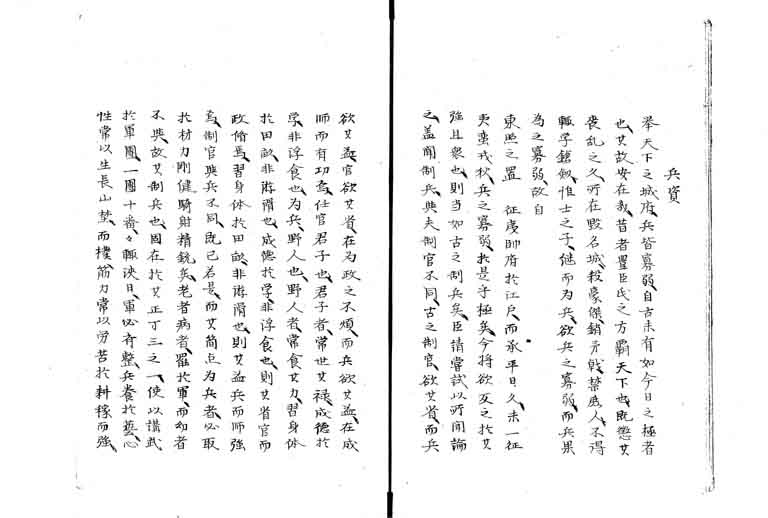 兵資
挙天下之城府兵皆寡弱自古未有如今日之極者
也其故安在哉昔者豊臣氏之方覇天下也既懲其
喪乱之久所在毀名城殺豪傑銷矛戟禁庶人不得
輒学鎗剣惟士之子継而為兵欲兵之寡弱而兵果
為之寡弱故自
東照之置　征夷帥府於江戸而承平日久未一征
夷蛮戎狄兵之寡弱於是乎極矣今将欲反之於其
強且衆也則当如古之制兵矣臣請嘗試以所聞論
之蓋聞制兵與夫制官不同古之制官欲其省而兵
欲其益官欲其省在為政之不煩而兵欲其益在成
師而有功為仕官君子也君子者常世其禄成徳於
学非浮食也為兵野人也野人者常食其力習身体
於田畝非游滑也成徳於学非浮食也則其省官而
政脩焉習身体於田畝非游滑也則其益兵而師強
焉制官與兵不同既已若是而其簡点為兵者必取
於材力剛健騎射精鋭兵老者病者罷於軍而幼者
不與故其制兵也国在於其正丁三之一使以講武
於軍団一団十番々輒決日軍必斉整兵養於藝心
性常以生長山埜而樸筋力常以労苦於耕稼而強